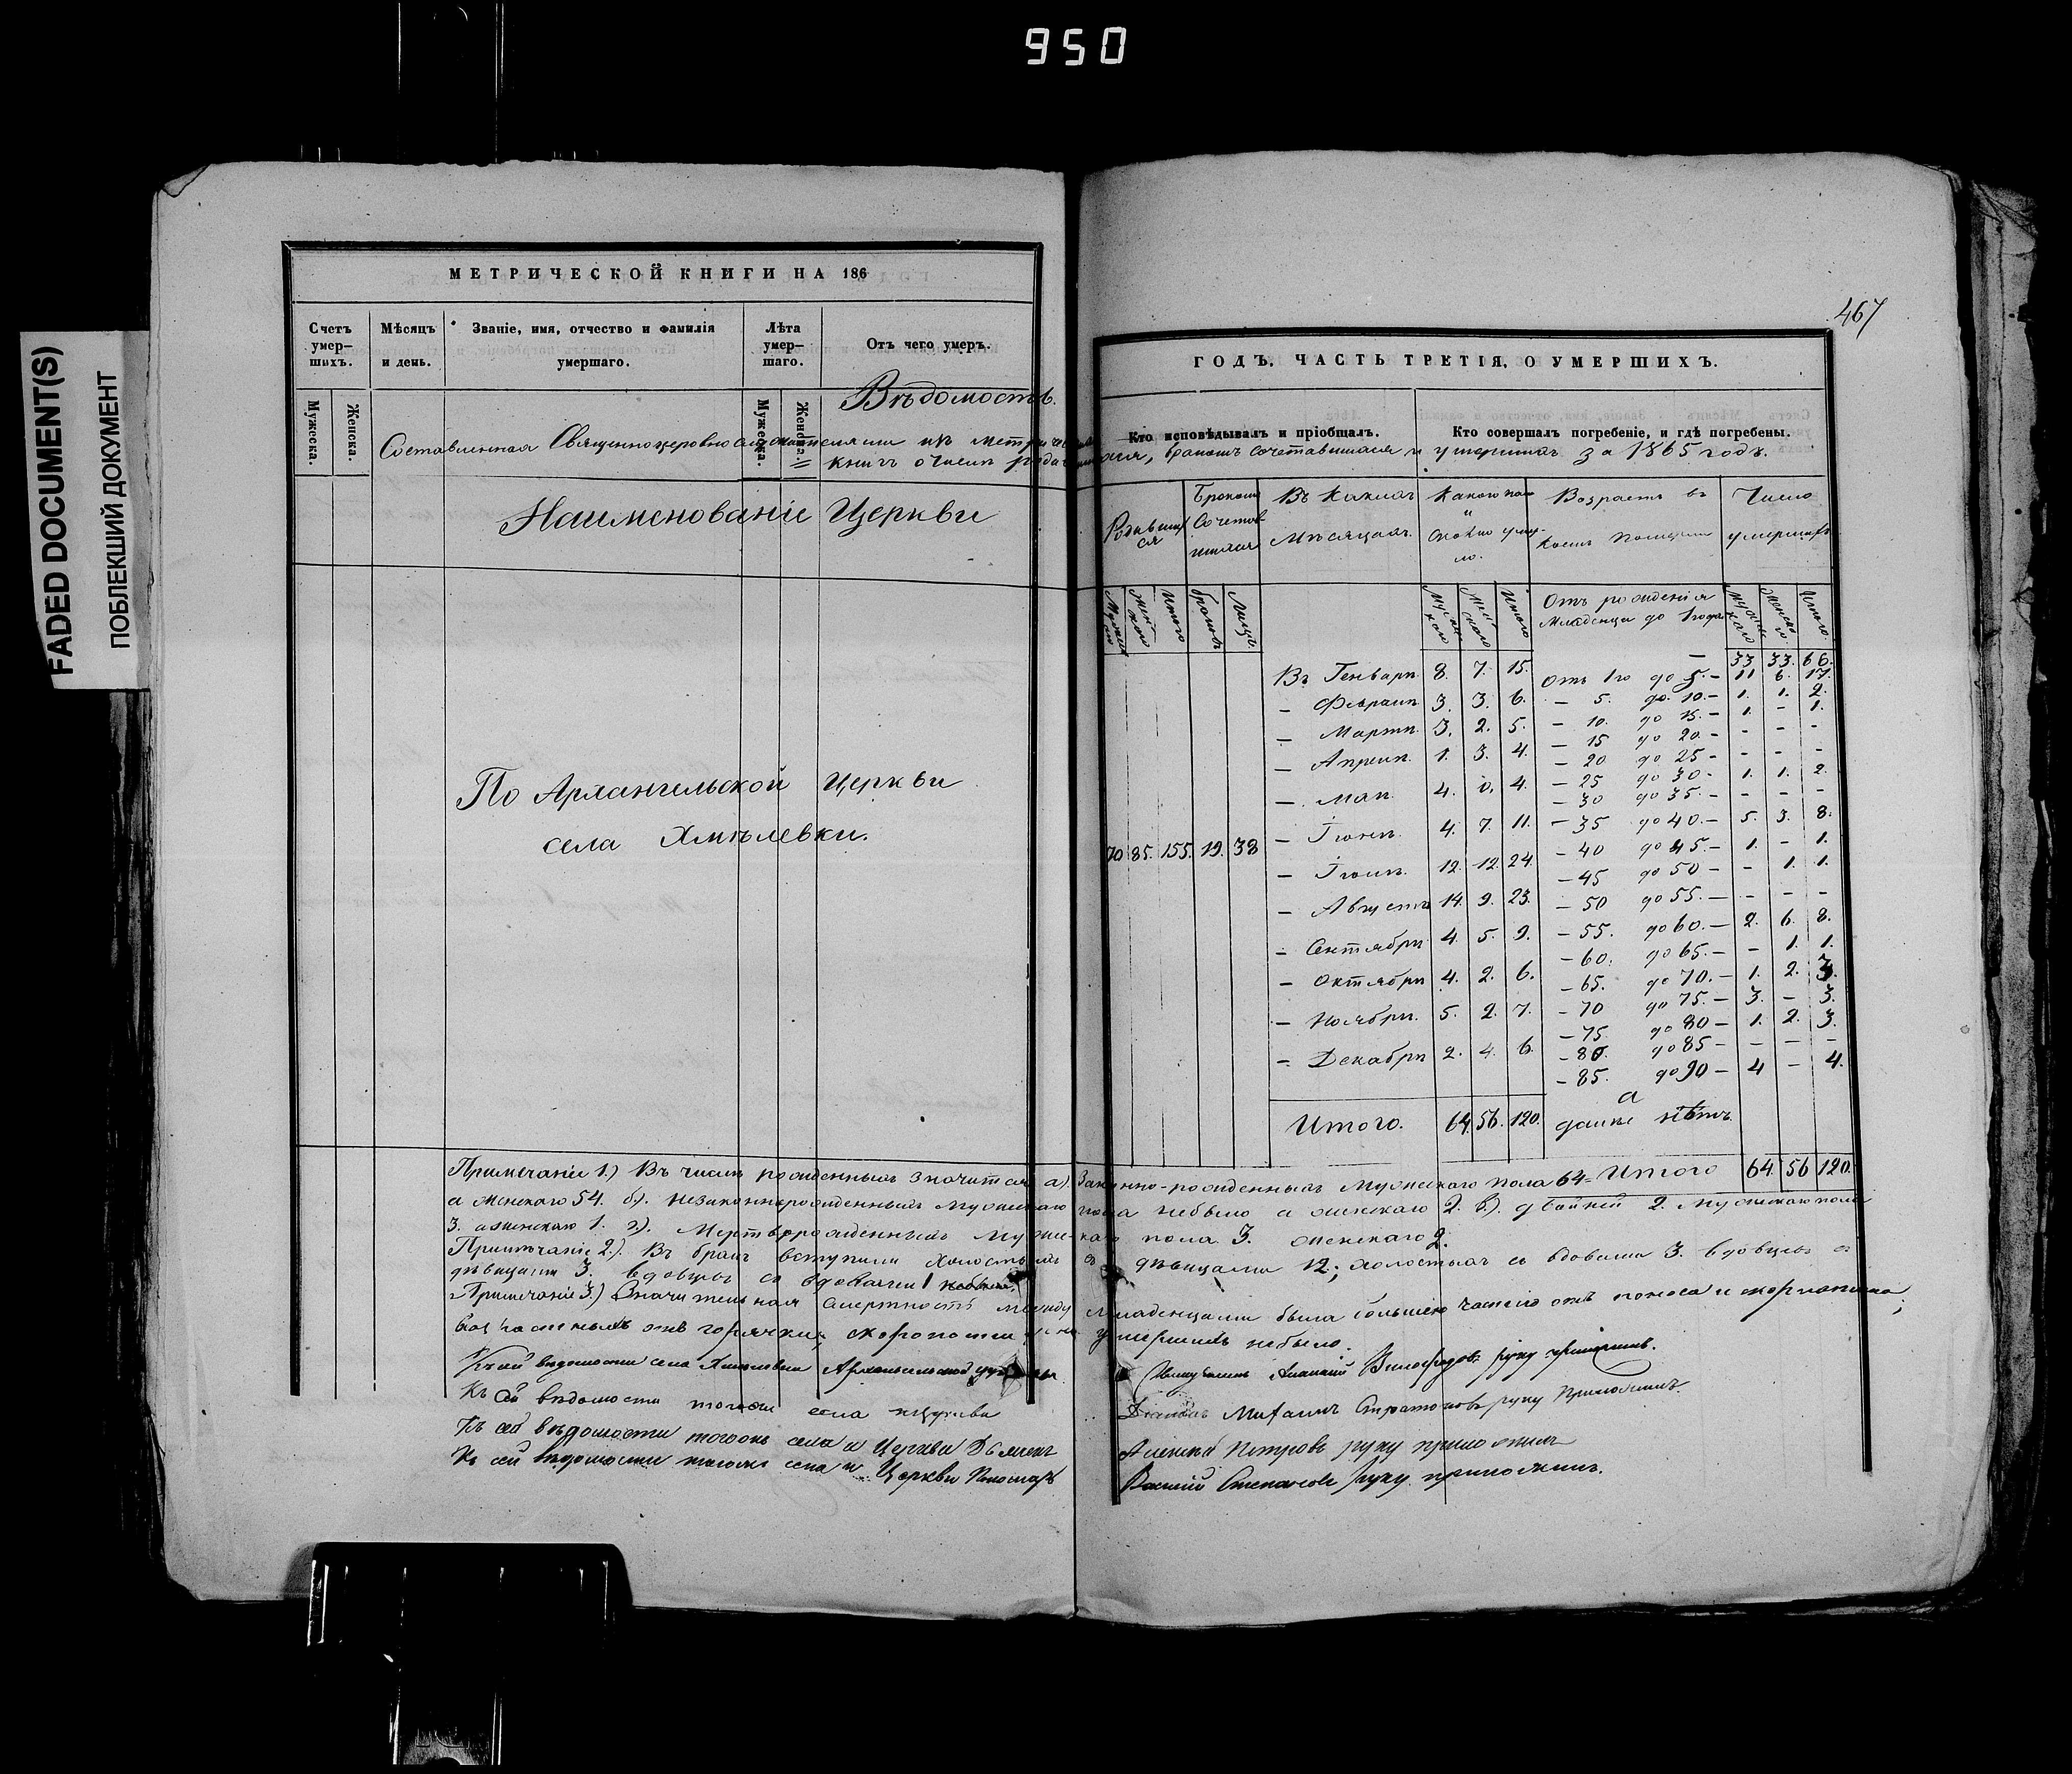 950
FADED DOCUMENT(S)
ПОБЛЕКШИЙ ДОКУМЕНТ
МЕТРИЧЕСКОЙ КНИГИ НА 186
Счетъ умер-шихъ.
Мѣсяцъ и день.
Званіе, имя, отчество и фамилія умершаго.
Лѣта умер-шаго.
Отъ чего умеръ.
Мужеска.
Женска.
Мужеска.
Женска.
467
ГОДЪ. ЧАСТЬ ТРЕТІЯ, О УМЕРШИХЪ.
Кто исповѣдывалъ и пріобщалъ.
Кто совершалъ погребеніе, и гдѣ погребены.
Вѣдомость
Составленная Священноцерковнослужителями изъ метрическихъ
книгъ о числѣ родившихся, бракомъ сочетавшихся и умершихъ за 1865 годъ.
Наименованіе Церкви
Родившихся
Бракомъ Сочетавшихся
Въ какихъ Мѣсяцахъ
Какого пола и сколько умерло.
Возрастъ въ коемъ померли
Число умершихъ
Мужескаго
Женскаго
Итого
браковъ
Лицъ
Мужескаго
Женскаго
Итого
Отъ рожденія
Младенца до 1 года
Мужескаго
Женскаго
Итого.
— 33 33. 66.
Въ Генварѣ 8. 7. 15.
— Февралѣ 3. 3. 6.
— Мартѣ 3. 2. 5.
— Апрелѣ 1. 3. 4.
— Маѣ 4. 0. 4.
— Іюнѣ 4. 7. 11.
— Іюлѣ 12. 12. 24
— Августѣ 14. 9. 23.
— Сентябрѣ 4. 5. 9.
— Октябрѣ 4. 2. 6.
— Ноябрѣ 5. 2. 7.
— Декабрѣ 2. 4. 6.
Итого. 64. 56. 120.
Отъ 1го до 5.— 11 6. 17.
— 5. до 10.— 1. 1. 2.
— 10. до 15.— 1. — 1.
— 15 до 20.— — — —
— 20 до 25— — — —
— 25 до 30— 1. 1. 2.
— 30 до 35.— — — —
— 35 до 40.— 5. 3. 8.
— 40 до 45.— 1. — 1.
— 45 до 50— — 1. 1.
— 50 до 55.— — — —
— 55. до 60.— 2. 6. 8.
— 60. до 65.— — 1. 1.
— 65. до 70.— 1. 2. 3.
— 70 до 75.— 3. — 3.
— 75 до 80— 1. 2. 3.
— 80. до 85— — — —
— 85. до 90— 4 — 4.
а
далѣе нѣтъ.
Итого 64. 56 120.
По Архангельской Церкви
села Хмѣлевки.
70 85. 155. 19. 38
Примѣчаніе 1.) Въ числѣ рожденныхъ значится а). Законно-рожденныхъ Мужескаго пола 64=
а Женскаго 54. б). Незаконнорожденныхъ Мужескаго пола небыло а женскаго 2. в). двойней 2. Мужескаго пола
3. а женскаго 1. г). Мертворожденныхъ Мужескаго пола 3. женскаго 2.
Примѣчаніе 2.). Въ бракъ вступили Холостыхъ съ дѣвицами 12; холостыхъ съ вдовами 3. вдовцовъ съ
дѣвицами 3. вдовцовъ съ вдовами 1
Примѣчаніе 3.) Значительная Смертность между Младенцами была большею частію отъ поноса и скарлатины,
отъ горячки; скоропостижно умершихъ небыло.
Къ сей вѣдомости села Хмѣлевки Архангельской церкви Священникъ Виноградовъ руку приложилъ.
Къ сей вѣдомости тогоже села и церкви Діаконъ Михаилъ руку приложилъ.
Къ сей вѣдомости тогожъ села и Церкви Дьячекъ Алексѣй Петровъ руку приложилъ
Къ сей вѣдомости тогоже села и Церкви Пономарь Василій Степановъ руку приложилъ.